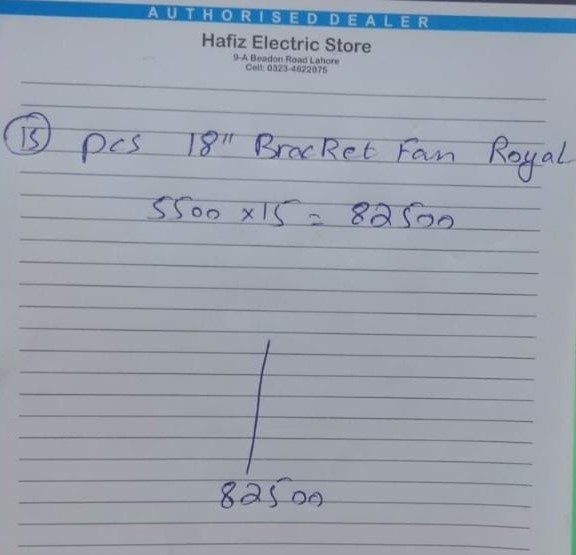 AUTHORISED DEALER
Hafiz Electric Store
9-A Beadon Road Lahore
Cell: 0323-4622075
15 Pcs 18" Bracket Fan Royal
5500 x 15 = 82500
82500